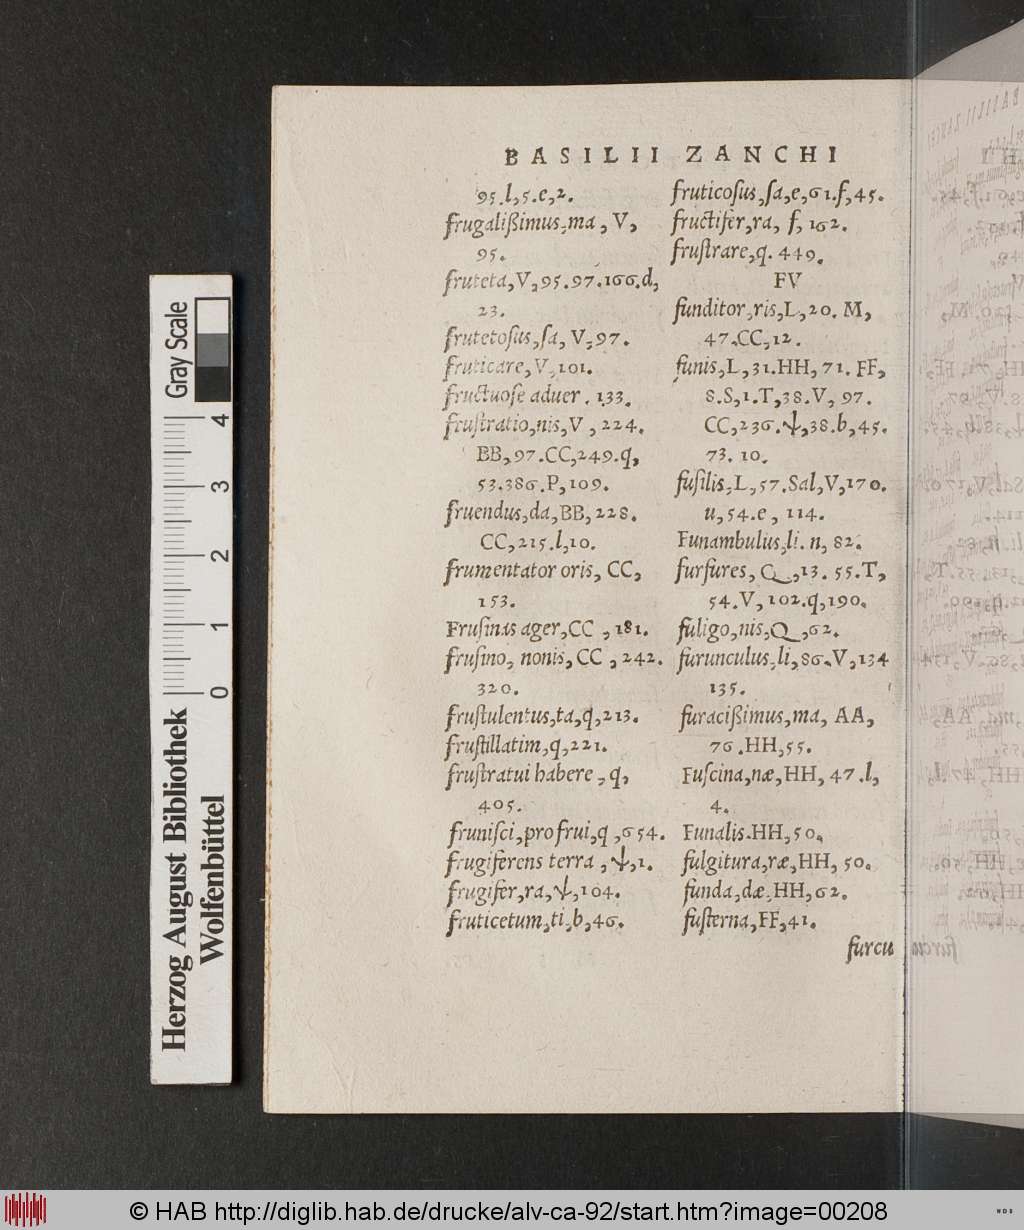 BASILII ZANCHI
95.l,5.e,2.
frugalißimus,ma, V,
95.
fruteta,V,95.97.166.d,
23.
frutetoſus,ſa, V,97.
fruticare,V,101.
fructuoſe aduer. 133.
fruſtratio,nis,V, 224.
BB,97.CC,249.q,
53.386.P,109.
fruendus,da,BB,228.
CC,215.l,10.
frumentator oris, CC,
153.
Fruſinas ager,CC, 181.
fruſino, nonis, CC, 242.
320.
fruſtulentus,ta,q,213.
fruſtillatim,q,221.
fruſtratui habere, q,
405.
fruniſci,pro frui,q,654.
frugiferens terra, ѱ,1.
frugifer,ra,ѱ,104.
fruticetum,ti,b,46.
fruticoſus,ſa,e,61.f,45.
fructifer,ra, f, 162.
fruſtrare,q. 449.
FV
funditor,ris,L,20. M,
47.CC,12.
funis,L,31.HH,71. FF,
8.S,1.T,38.V, 97.
CC,236.ѱ,38.b,45.
73. 10.
fuſilis,L,57.Sal,V,170.
u,54.e, 114.
Funambulus,li. n, 82.
furfures, Q,13. 55.T,
54.V, 102.q,190.
fuligo,nis,Q,62.
furunculus,li,86.V,134
135.
furacißimus,ma, AA,
76.HH,55.
Fuſcina,næ,HH, 47.l,
4.
Funalis.HH,50.
fulgitura,ræ,HH, 50.
funda,dæ,HH,62.
fuſterna,FF,41.
furcu
Gray Scale
4
3
2
1
0
Herzog August Bibliothek
Wolfenbüttel
© HAB http://diglib.hab.de/drucke/alv-ca-92/start.htm?image=00208